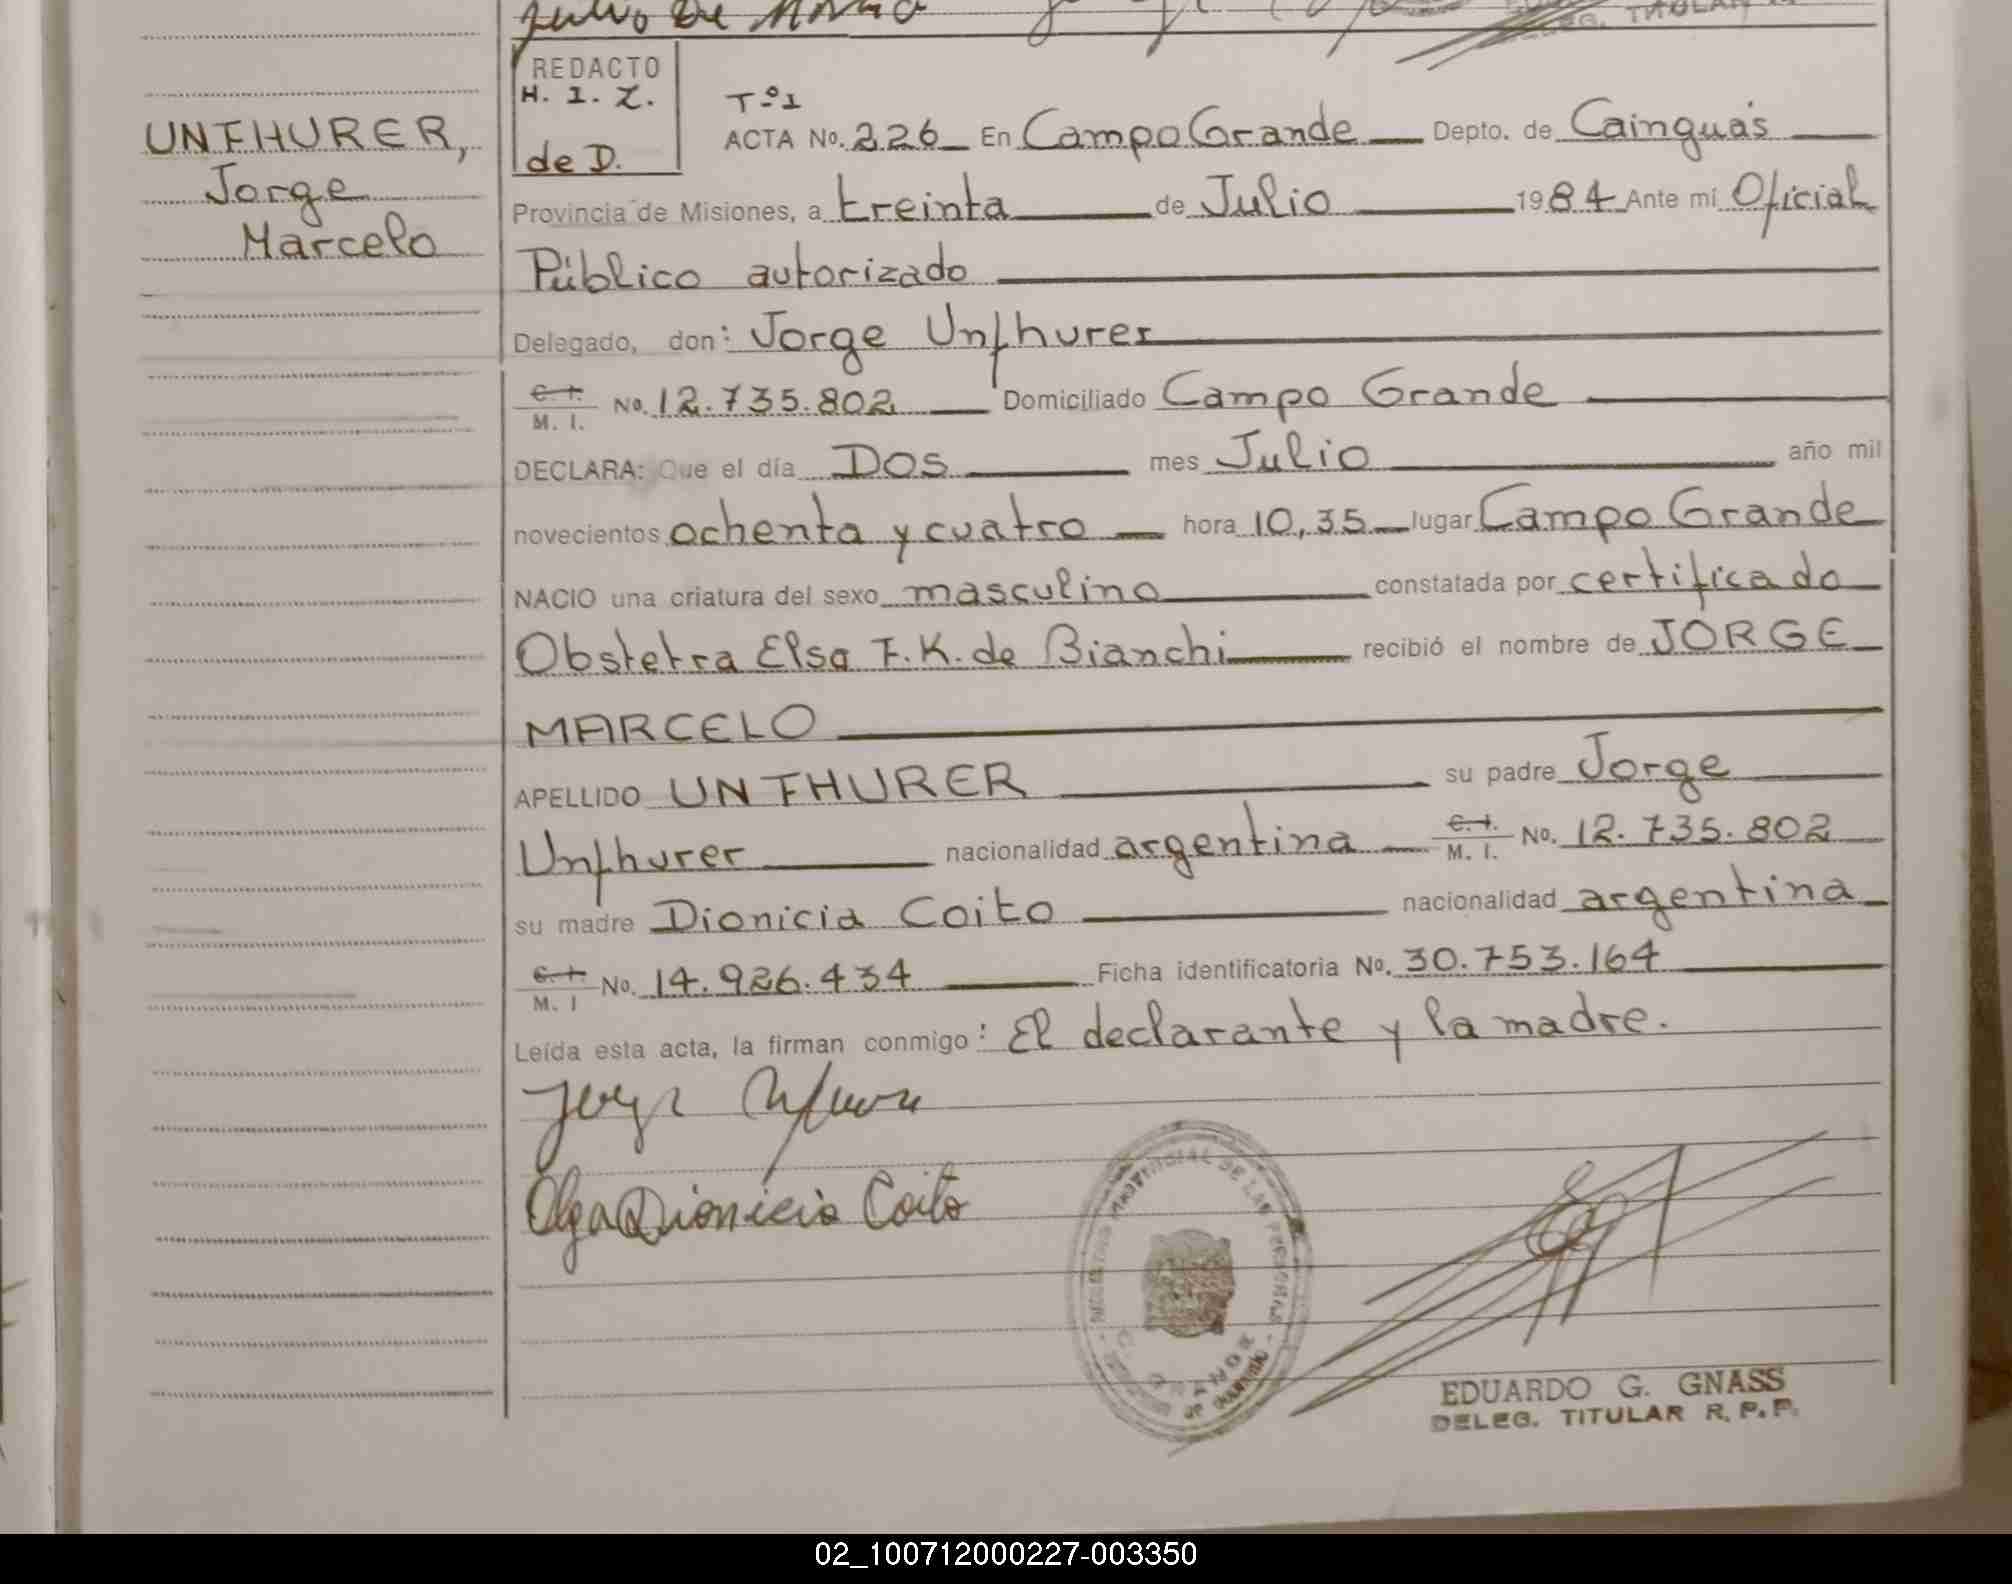 Julio de
DELEG. TITULAR
UNFHURER,
Jorge
Marcelo
REDACTO
H. I. Z.
de D.
Tº I
ACTA No. 226 En Campo Grande Depto. de Cainguás
Provincia de Misiones, a treinta de Julio 1984 Ante mí Oficial
Público autorizado
Delegado, don: Jorge Unfhurer
C. I. M. I. No. 12.735.802 Domiciliado Campo Grande
DECLARA: Que el día DOS mes Julio año mil
novecientos ochenta y cuatro hora 10,35 lugar Campo Grande
NACIO una criatura del sexo masculino constatada por certificado
Obstetra Elsa F. K. de Bianchi recibió el nombre de JORGE
MARCELO
APELLIDO UNFHURER su padre Jorge
Unfhurer nacionalidad argentina C. I. M. I. No. 12.735.802
su madre Dionicia Coito nacionalidad argentina
C. I. M. I No. 14.926.434 Ficha identificatoria No. 30.753.164
Leída esta acta, la firman conmigo: El declarante y la madre.
Jorge Unfhurer
Olga Dionicia Coito
PROVINCIAL DE LAS PERSONAS
EDUARDO G. GNASS
DELEG. TITULAR R. P. P.
02_100712000227-003350